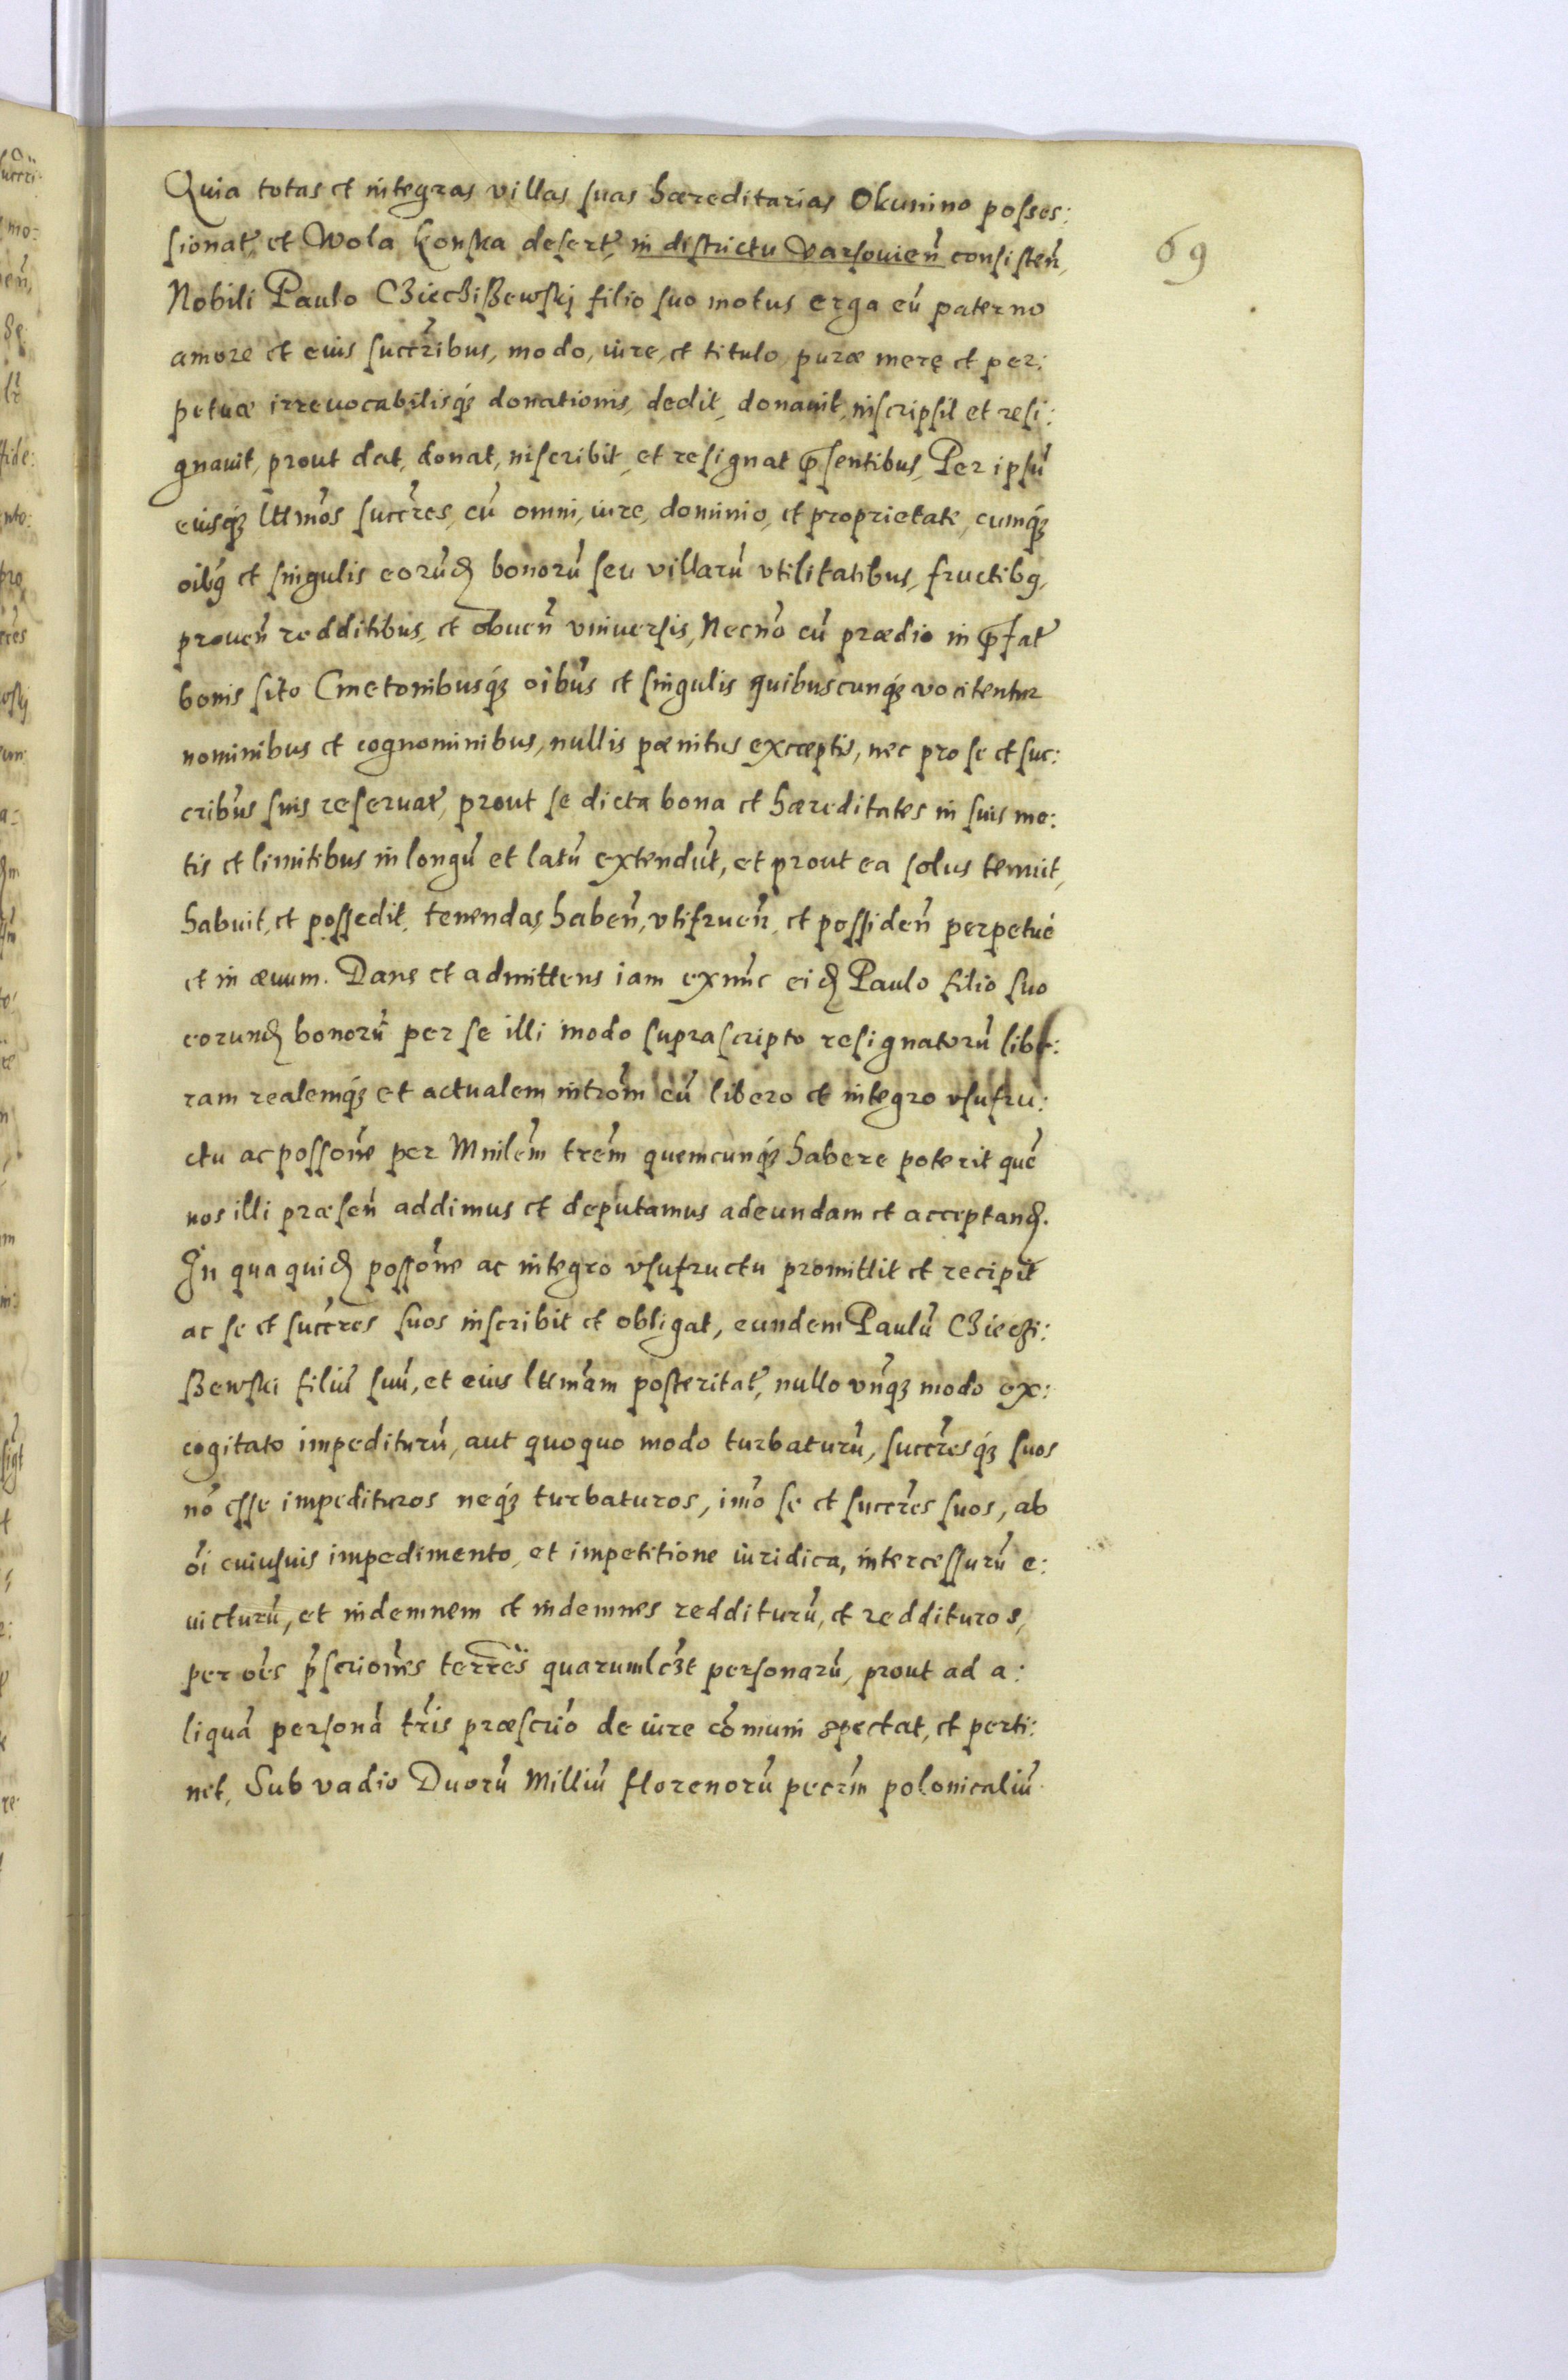 Quia totas et integras villas suas hæreditarias Okunino posses:
sionat̃, et Wola Konska desert̃, in districtu Varsouień consisteń,
69
Nobili Paulo Chiechiszewskj filio suo motus erga eũ paterno
amore et eius succr̃ibus, modo, iure, et titulo, puræ merę et per:
petuæ irreuocabilisq́ꝫ donationis, dedit, donauit, inscripsit et resi:
gnauit, prout dat, donat, inscribit, et resignat p̃sentibus, Per ipsũ
eiusq́ꝫ lttm̃os succr̃es, cũ omni, iure, dominio, et proprietate, cumq́ꝫ
oib9 et singulis eorũd bonorũ seu villarũ vtilitatibus, fructib9,
proueń redditibus, et obueń vniuersis, Necnõ cũ prædio in p̃fat̃
bonis sito Cmetonibusq́ꝫ oib̃us et singulis quibuscunq́ꝫ vocitentur
nominibus et cognominibus, nullis pænitus exceptis, nec pro se et suc:
crib̃us suis reseruat̃, prout se dicta bona et hæreditates in suis me:
tis et limitibus in longũ et latũ extendũt, et prout ea solus tenuit,
habuit, et possedit, tenendas, habeń, vtifrueń, et possideń perpetué
et in æuum. Dans et admittens iam exnũc eid Paulo filio suo
eorund bonorũ per se illi modo suprascripto resignatorũ libe:
ram realemq́ꝫ et actualem intrõm cũ libero et integro vsufru:
ctu ac possõne per Mnilẽm trẽm quemcunq́ꝫ habere poterit quẽ
nos illi præseń addimus et deputamus adeundam et acceptand.
In qua quid possõne ac integro vsufructu promittit et recipit
ac se et succr̃es suos inscribit et obligat, eundem Paulũ Chiechi:
szewski filiũ suũ, et eius lttm̃am posteritat̃, nullo vnq̃ꝫ modo ex:
cogitato impediturũ, aut quoquo modo turbaturũ, succr̃esq́ꝫ suos
nõ esse impedituros neq́ꝫ turbaturos, imõ se et succr̃es suos, ab
õi cuiusuis impedimento, et impetitione iuridica, intercessurũ e:
uicturũ, et indemnem et indemnes redditurũ, et reddituros,
per oẽs p̃scriones terres̃ quarumlczt personarũ, prout ad a:
liquã personã tr̃is præscriõ de iure cõmuni spectat, et perti:
net, Sub vadio Duorũ Milliũ florenorũ pecr̃m polonicaliũ